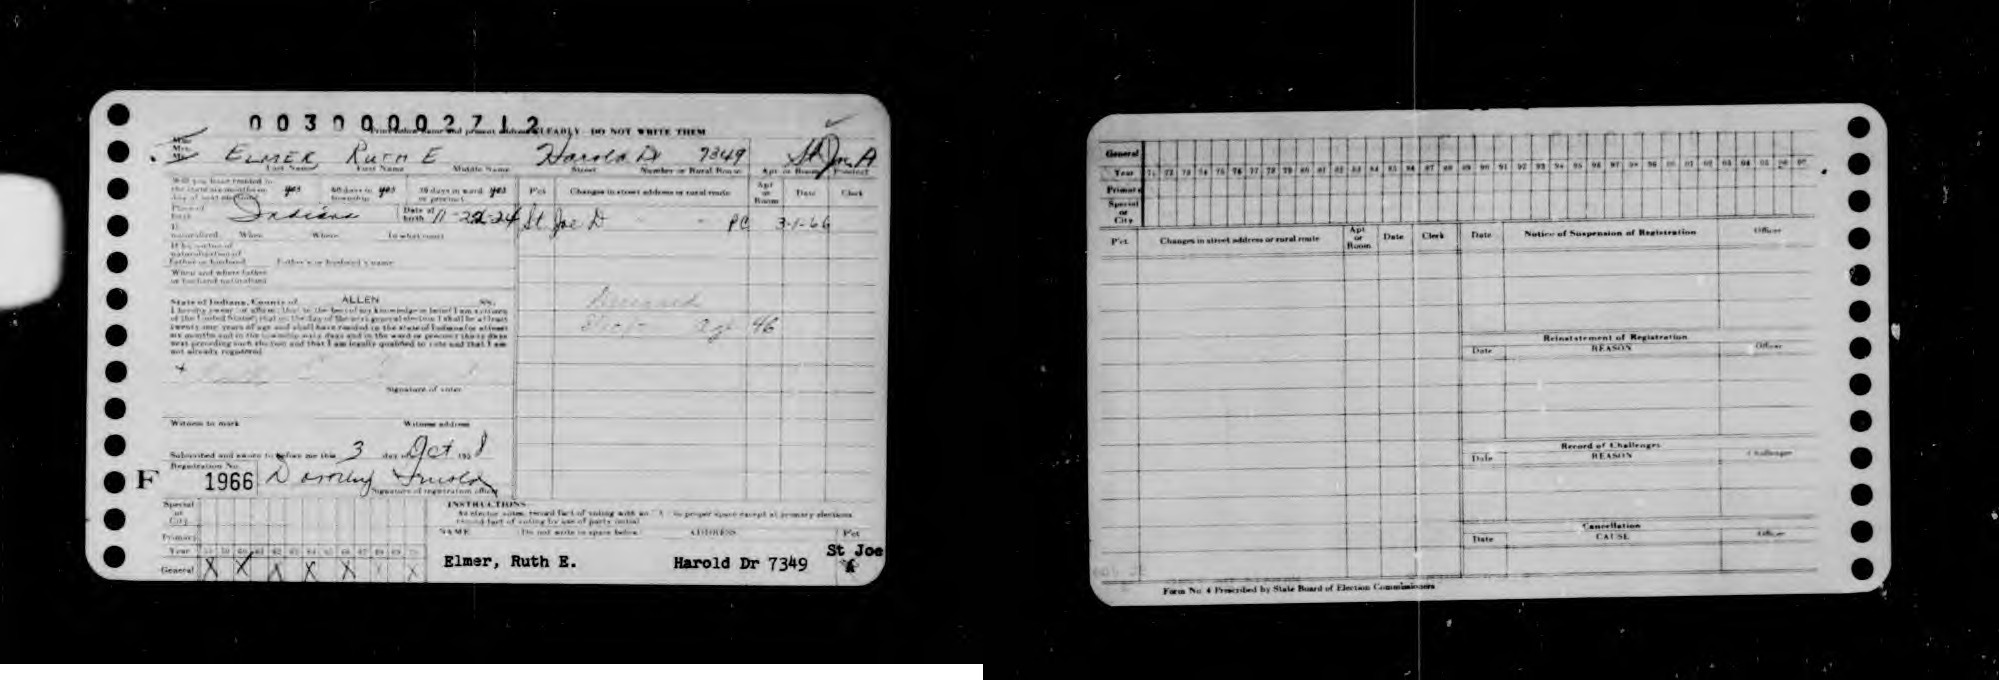 003000002712
Print below name and present address CLEARLY - DO NOT WRITE THEM
Miss
Mrs.
Mr.
ELMER, RUTH E Harold Dr 7349 St Joe A
Last Name First Name Middle Name Street Number or Rural Route Apt or Room Precinct
Will you have resided in
the state six months on yes 60 days in township yes 30 days in ward or precinct yes
day of next election?
Place of birth Indiana Date of birth 11-22-24
If naturalized When Where In what court
If by virtue of
naturalization of
Father or husband Father's or husband's name
When and where father
or husband naturalized
P'ct Changes in street address or rural route Apt or Room Date Clerk
St Joe D " " PC 3-1-66
Deceased
age 46
State of Indiana, County of ALLEN SS.
I hereby swear (or affirm) that to the best of my knowledge or belief I am a citizen
of the United States; that on the day of the next general election I shall be at least
twenty one years of age and shall have resided in the state of Indiana for at least
six months and in the township sixty days and in the ward or precinct thirty days
next preceding such election and that I am legally qualified to vote and that I am
not already registered
Signature of voter
Witness to mark Witness address
Subscribed and sworn to before me this 3 day of Oct 195 8
Registration No.
F 1966 Dorothy
Signature of registration officer
Special or City
Primary
Year 58 59 60 61 62 63 64 65 66 67 68 69 70
General X X X X X X X
INSTRUCTIONS
As elector votes, record fact of voting with an "X" in proper space except at primary elections
record fact of voting by use of party initial
NAME (Do not write in space below) ADDRESS P'ct
Elmer, Ruth E. Harold Dr 7349 St Joe
General
Year 71 72 73 74 75 76 77 78 79 80 81 82 83 84 85 86 87 88 89 90 91 92 93 94 95 96 97 98 99 00 01 02 03 04 05 06 07
Primary
Special or City
P'ct Changes in street address or rural route Apt or Room Date Clerk
Date Notice of Suspension of Registration Officer
Reinstatement of Registration
Date REASON Officer
Record of Challenges
Date REASON Challenger
Cancellation
Date CAUSE Officer
Form No. 4 Prescribed by State Board of Election Commissioners